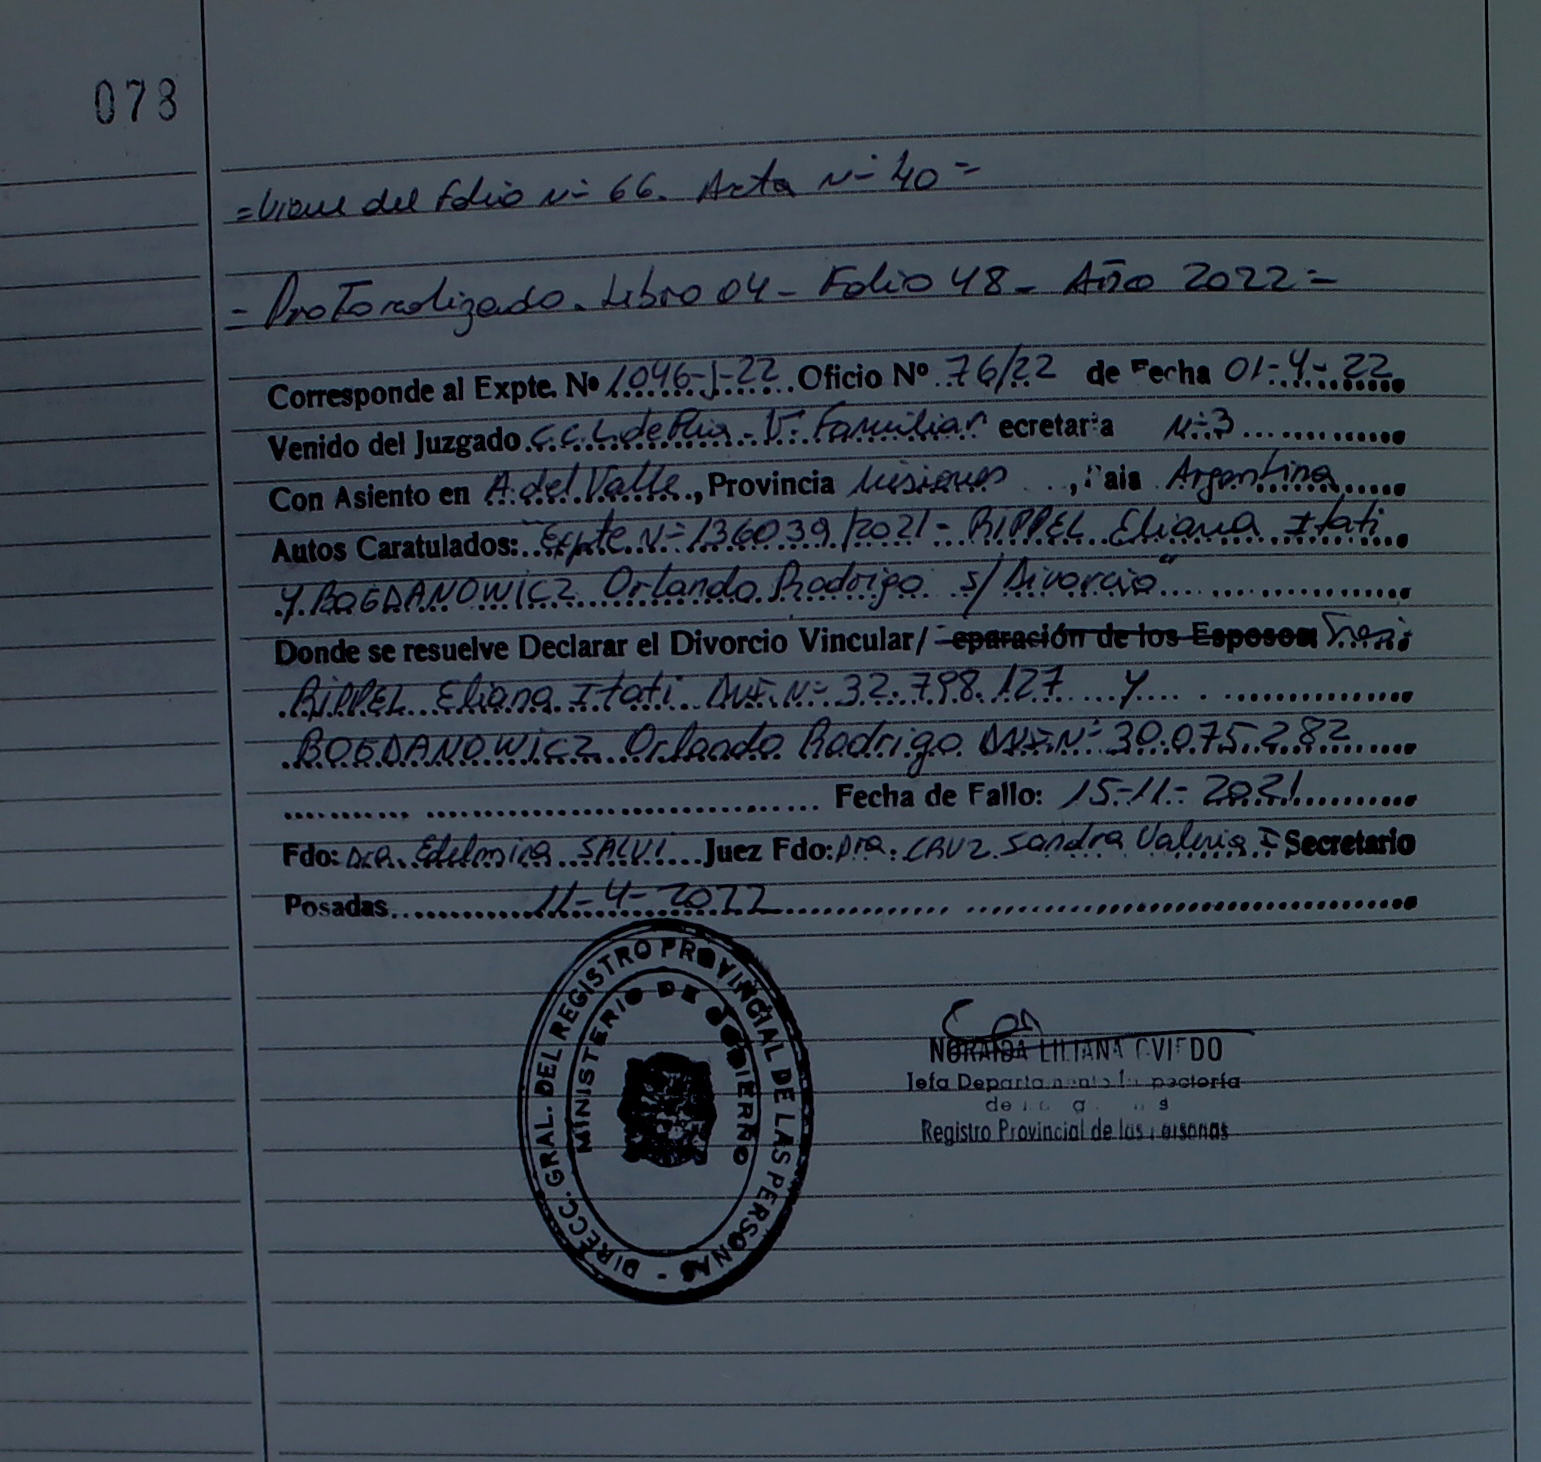 078
= Viene del Folio Nº 66. Acta Nº 40 =
= Protocolizado. Libro 04 - Folio 48 - Año 2022 =
Corresponde al Expte. Nº 1046-J-22 Oficio Nº 76/22 de Fecha 01-4-22
Venido del Juzgado C.C.L. de Flia - V. Familiar ecretaria Nº 3
Con Asiento en A. del Valle, Provincia Misiones, Pais Argentina
Autos Caratulados: "Expte Nº 136039/2021 - RIPPEL Eliana Itati
Y BOGDANOWICZ Orlando Rodrigo s/ Divorcio"
Donde se resuelve Declarar el Divorcio Vincular/ eparación de los Esposos
RIPPEL Eliana Itati DNI Nº 32.798.127 Y
BOGDANOWICZ Orlando Rodrigo DNI Nº 30.075.282
Fecha de Fallo: 15-11-2021
Fdo: Dra. Edelmira SALVI Juez Fdo: Dra. CRUZ Sandra Valeria I Secretario
Posadas 11-4-2022
DIRECC. GRAL. DEL REGISTRO PROVINCIAL DE LAS PERSONAS -
MINISTERIO DE GOBIERNO
NORAIDA LILIANA OVIEDO
Jefa Departamento Inspectoría
de
Registro Provincial de las Personas